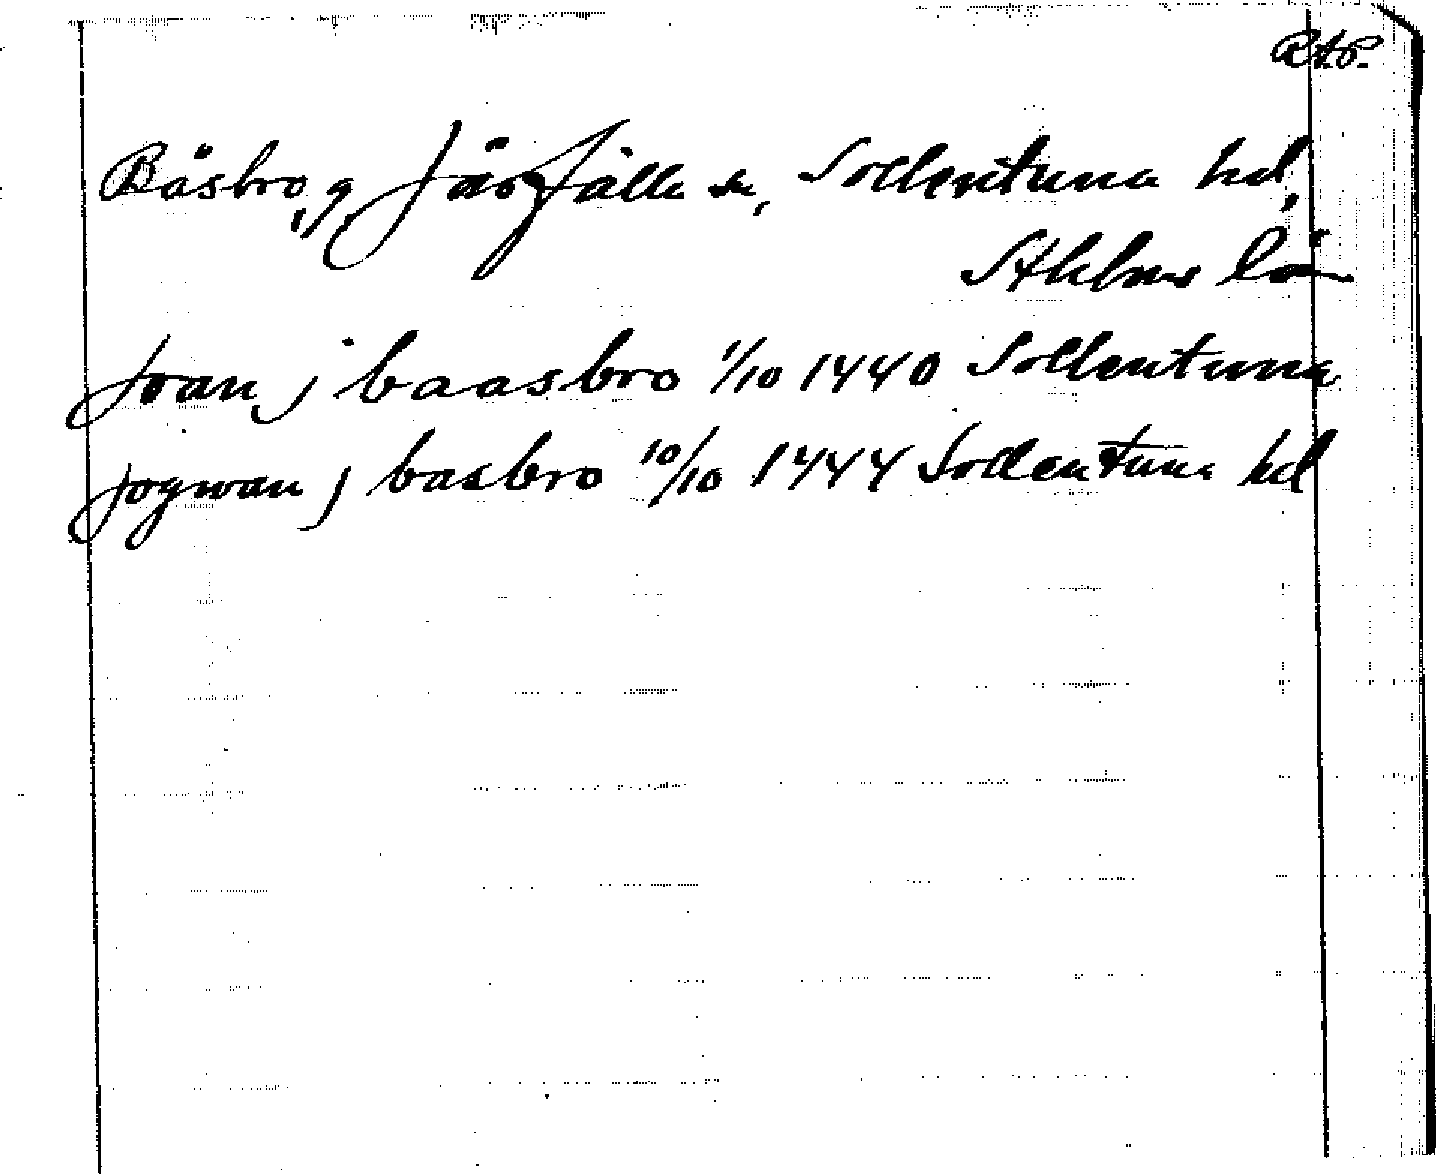 R.A.P.
Båsbro, g, Järfälla sn, Sollentuna hd,
Sthlms län
Joan j baasbro 1/10 1440 Sollentuna
jogwan j basbro 10/10 1444 Sollentuna hd